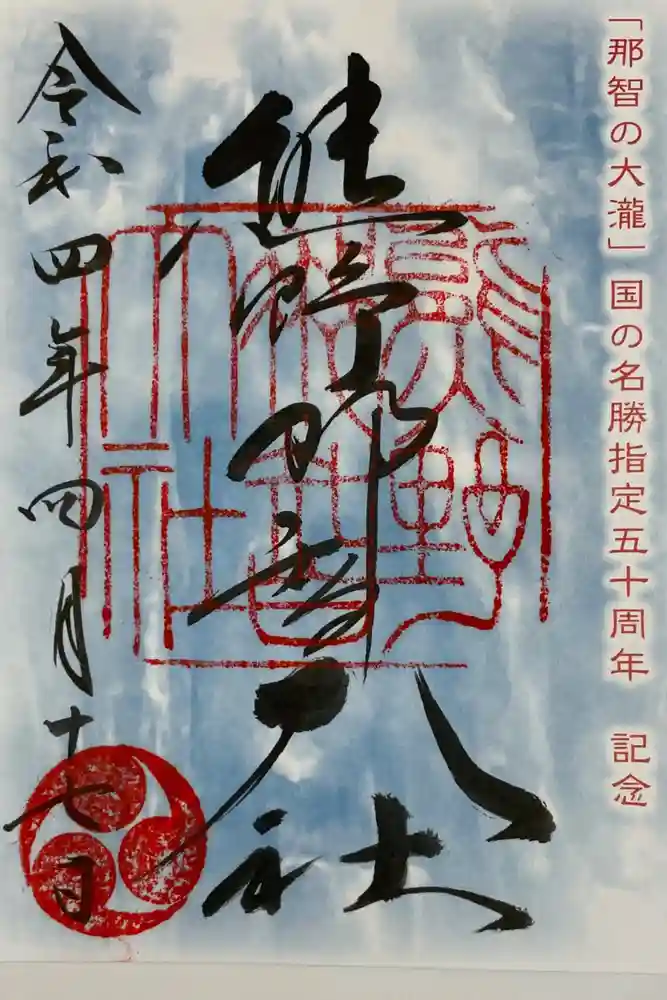 「那智の大瀧」国の名勝指定五十周年　記念
熊野那智大社
令和四年四月十七日